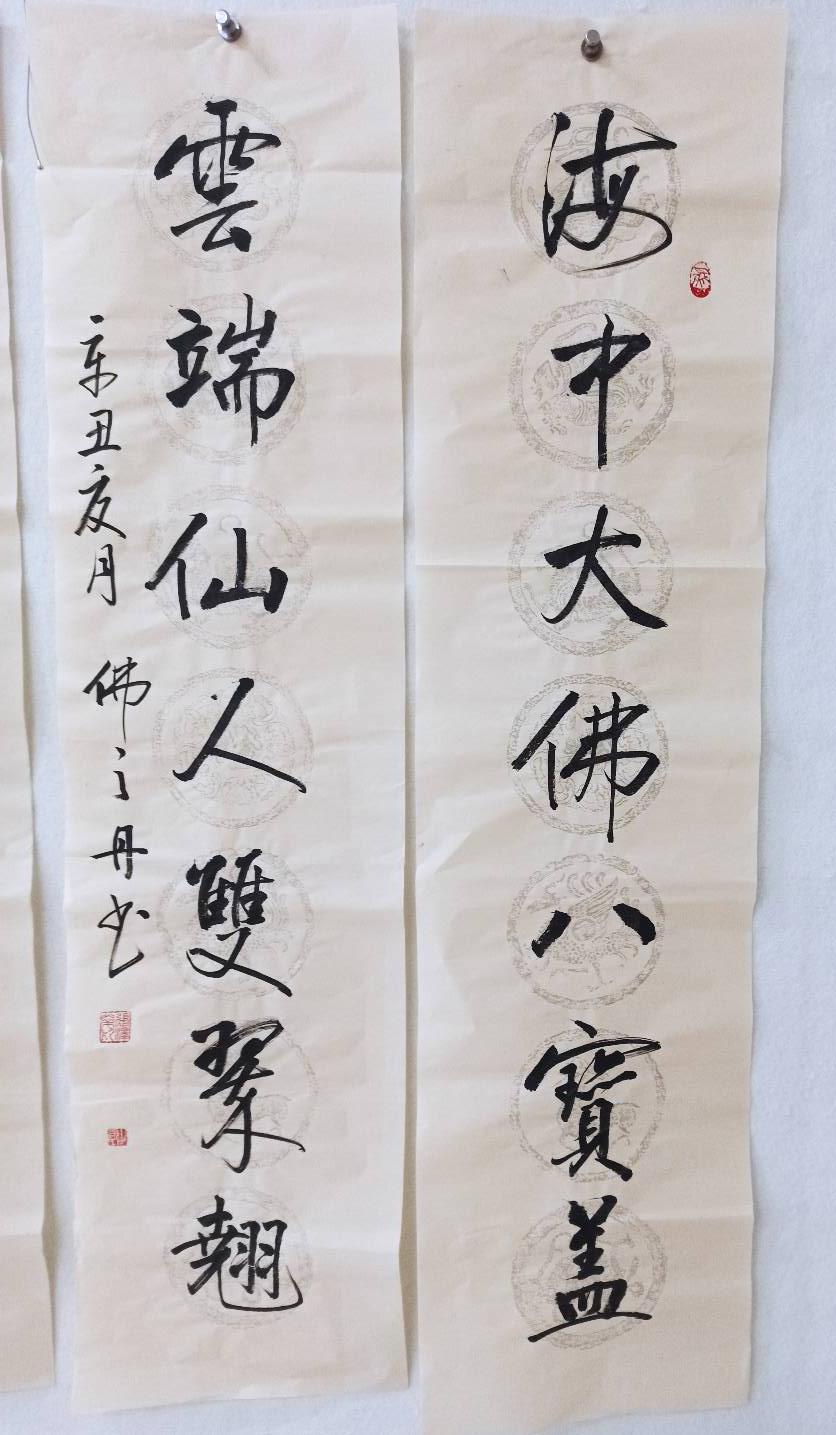 海中大佛八寶盖
雲端仙人雙翠翹
辛丑夏月 佛之丹书